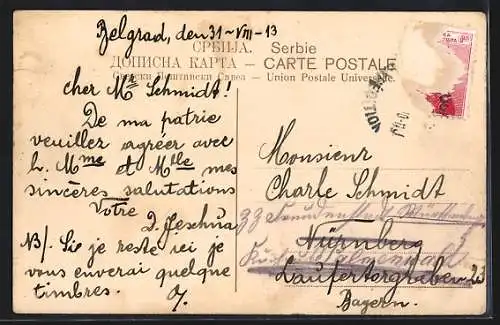 Belgrad, den 31-VIII-13
СРБИЈА. Serbie
ДОПИСНА КАРТА — CARTE POSTALE
Светски Поштански Савез — Union Postale Universelle.
cher Mr Schmidt!
De ma patrie
veuiller agréer avec
Mme et Mlle mes
sincères salutations
Votre
J. Jeschua
NB/. Si je reste ici je
vous enverai quelque
timbres. J.
Monsieur
Charle Schmidt
zz Freudenstadt Württemberg
Nürnberg
Laufertorgraben 23
Bayern.